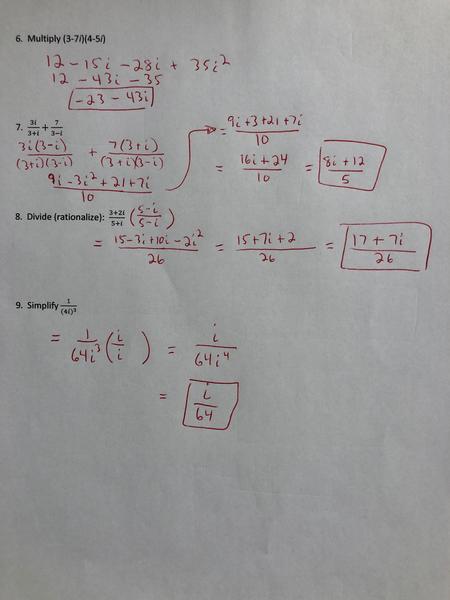 6. Multiply (3-7i)(4-5i)
12 - 15i - 28i + 35i²
12 - 43i - 35
-23 - 43i
7. 3i/(3+i) + 7/(3-i)
3i(3-i)/((3+i)(3-i)) + 7(3+i)/((3+i)(3-i))
(9i - 3i² + 21 + 7i)/10
= (9i + 3 + 21 + 7i)/10
= (16i + 24)/10 = (8i + 12)/5
8. Divide (rationalize): (3+2i)/(5+i) ((5-i)/(5-i))
= (15 - 3i + 10i - 2i²)/26 = (15 + 7i + 2)/26 = (17 + 7i)/26
9. Simplify 1/(4i)³
= 1/(64i³) (i/i) = i/(64i⁴)
= i/64